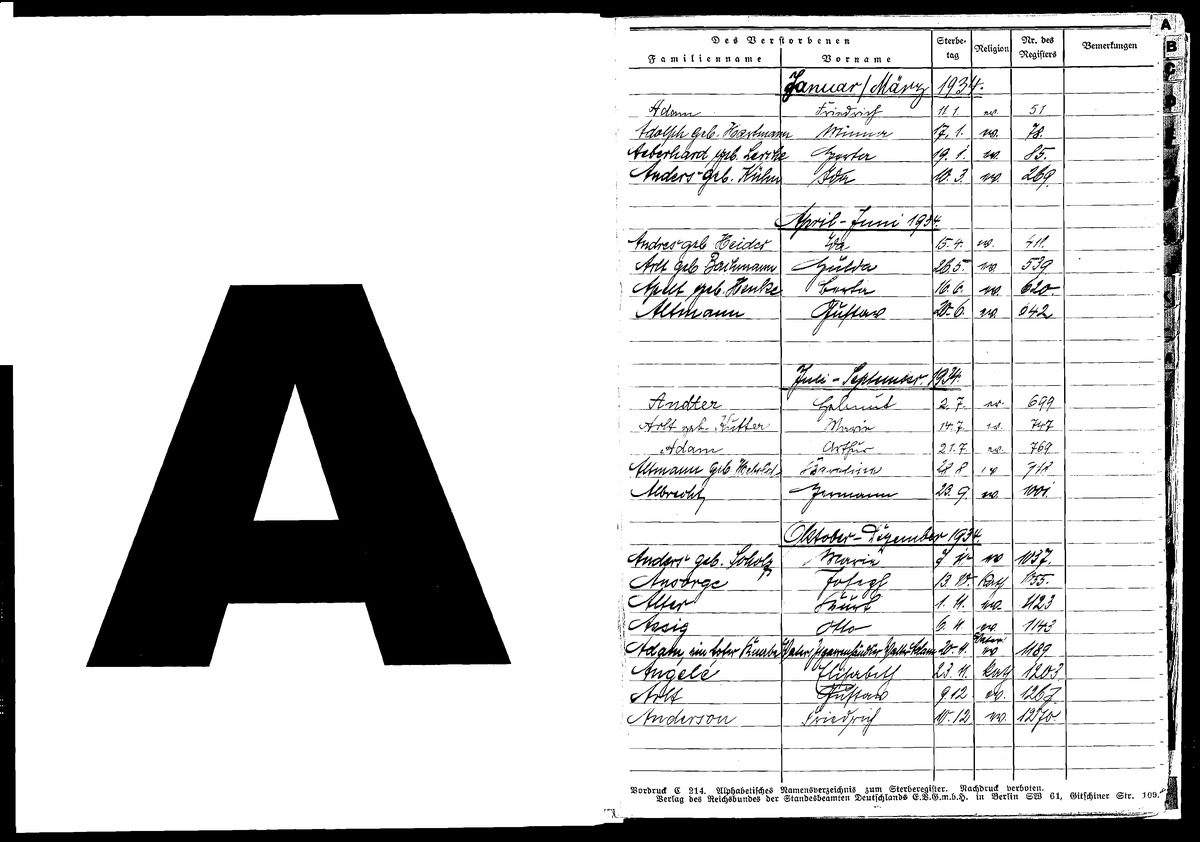 A
Des Verstorbenen
Sterbetag Religion Nr. des Registers Bemerkungen
Familienname Vorname
A
B
C
D
Januar/März 1934.
Adam Friedrich 11.1. ev. 51
Adolph geb. Hartmann Minna 17.1. ev. 78.
Aeberhard geb. Lerche Herta 19.1. ev. 85.
Anders geb. Kühn Ida 10.3. ev. 269.
April-Juni 1934.
Andres geb Heider Ida 15.4. ev. 411.
Arlt geb Bachmann Hulda 26.5. ev 539
Apelt geb. Henke Berta 16.6. ev. 620.
Altmann Gustav 20.6. ev. 642
Juli-September 1934.
Andter Helmut 2.7. ev. 699
Arlt geb. Marie 14.7. ev. 747
Adam Arthur 21.7. ev. 769
Altmann geb 28 8 ev
Albrecht Hermann 23.9. ev. 1001
Oktober-Dezember 1934.
Anders geb. Scholz Maria ev 1037.
Ansorge Josef 13.10. Kath 1055.
Alter Kurt 1.11. ev. 1123
Assig Otto 6.11. ev. 1143
Adam, ein toter Knabe Vater, Adam 20.11. ev 1189
Angelé Elisabeth 23.11. Kath 1203
Arlt Gustav 9.12. ev. 1267.
Anderson Friedrich 10.12 ev. 1270.
Vordruck C 214. Alphabetisches Namensverzeichnis zum Sterberegister. Nachdruck verboten.
Verlag des Reichsbundes der Standesbeamten Deutschlands E.V.G.m.b.H. in Berlin SW 61, Gitschiner Str. 109.